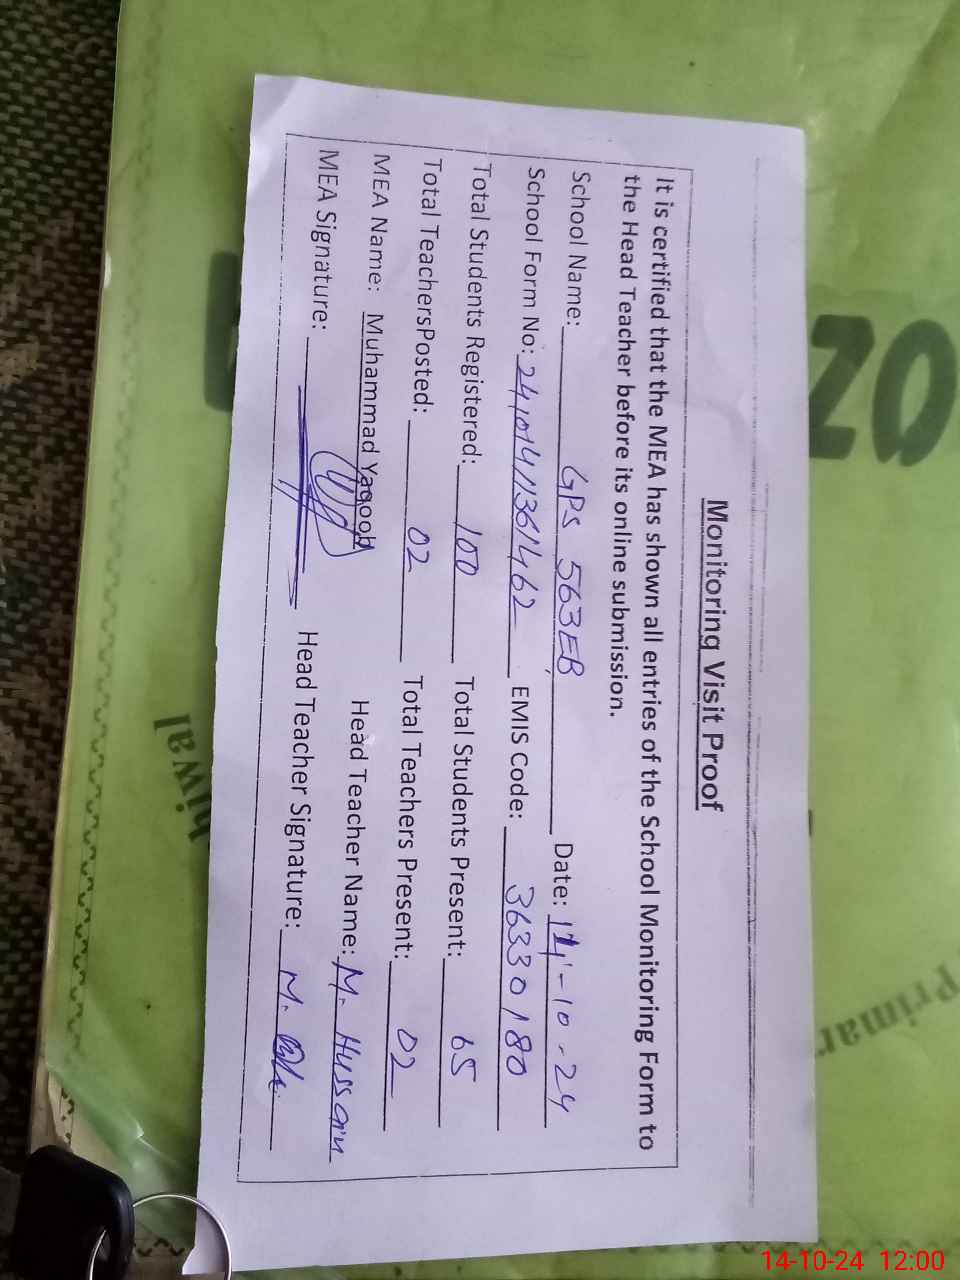 Monitoring Visit Proof
It is certified that the MEA has shown all entries of the School Monitoring Form to
the Head Teacher before its online submission.
School Name: GPS 563EB Date: 14-10-24
School Form No: 24101411361462 EMIS Code: 36330180
Total Students Registered: 100 Total Students Present: 65
Total TeachersPosted: 02 Total Teachers Present: 02
MEA Name: Muhammad Yaqoob Head Teacher Name: M. Hussain
MEA Signature: Head Teacher Signature: M.
Primar
hiwal
14-10-24 12:00